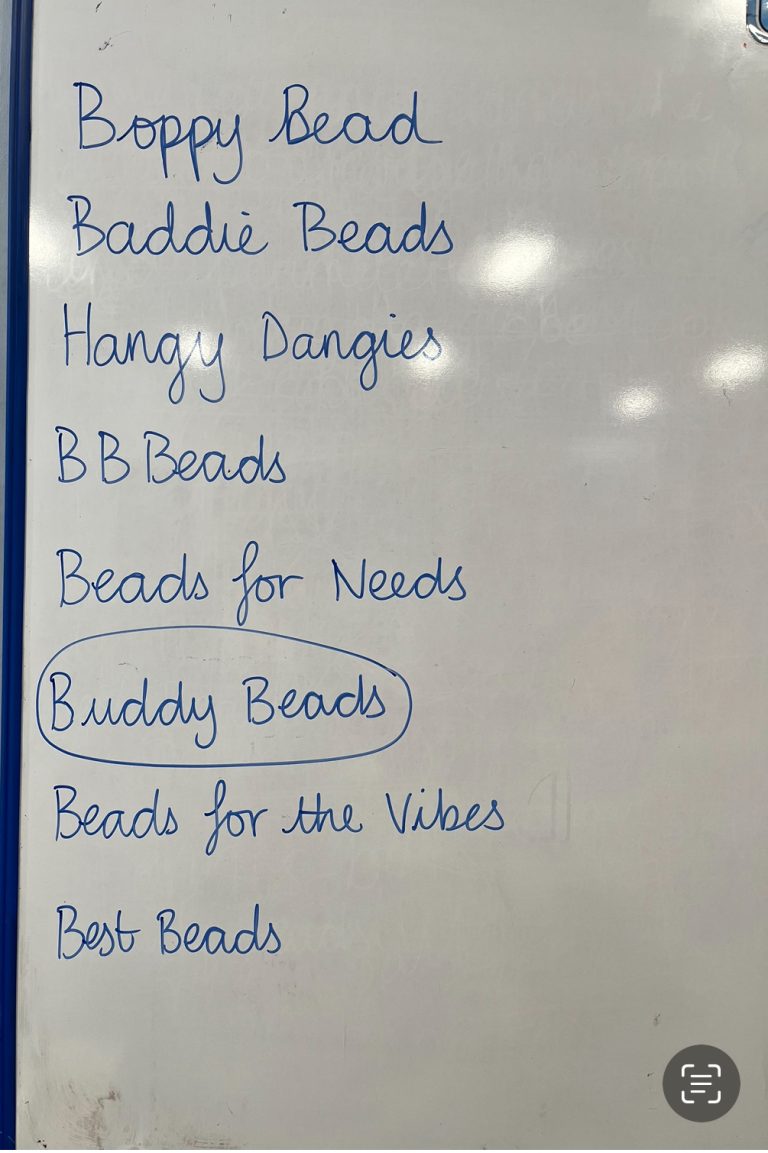 Boppy Bead
Baddie Beads
Hangy Dangies
B B Beads
Beads for Needs
Buddy Beads
Beads for the Vibes
Best Beads